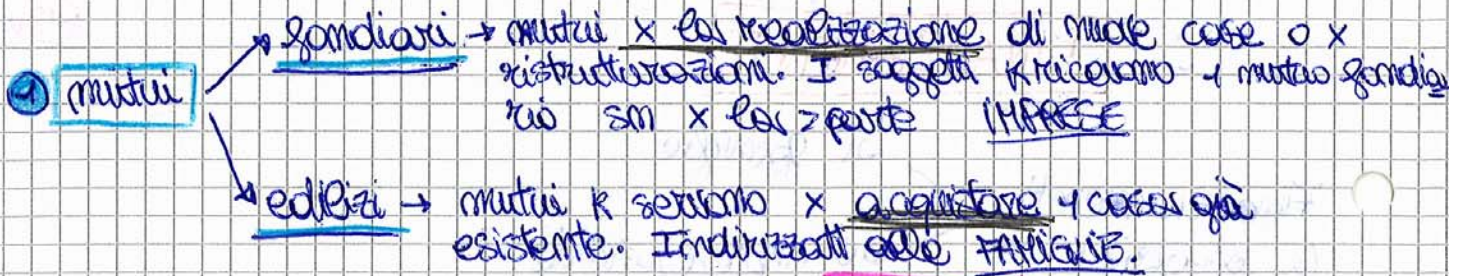 fondiari → mutui x la realizzazione di nuove case o x
1 mutui
ristrutturazioni. I soggetti k ricevono 1 mutuo fondia
rio sn x la > parte IMPRESE
edilizi → mutui k servono x acquistare 1 casa già
esistente. Indirizzati alle FAMIGLIE.